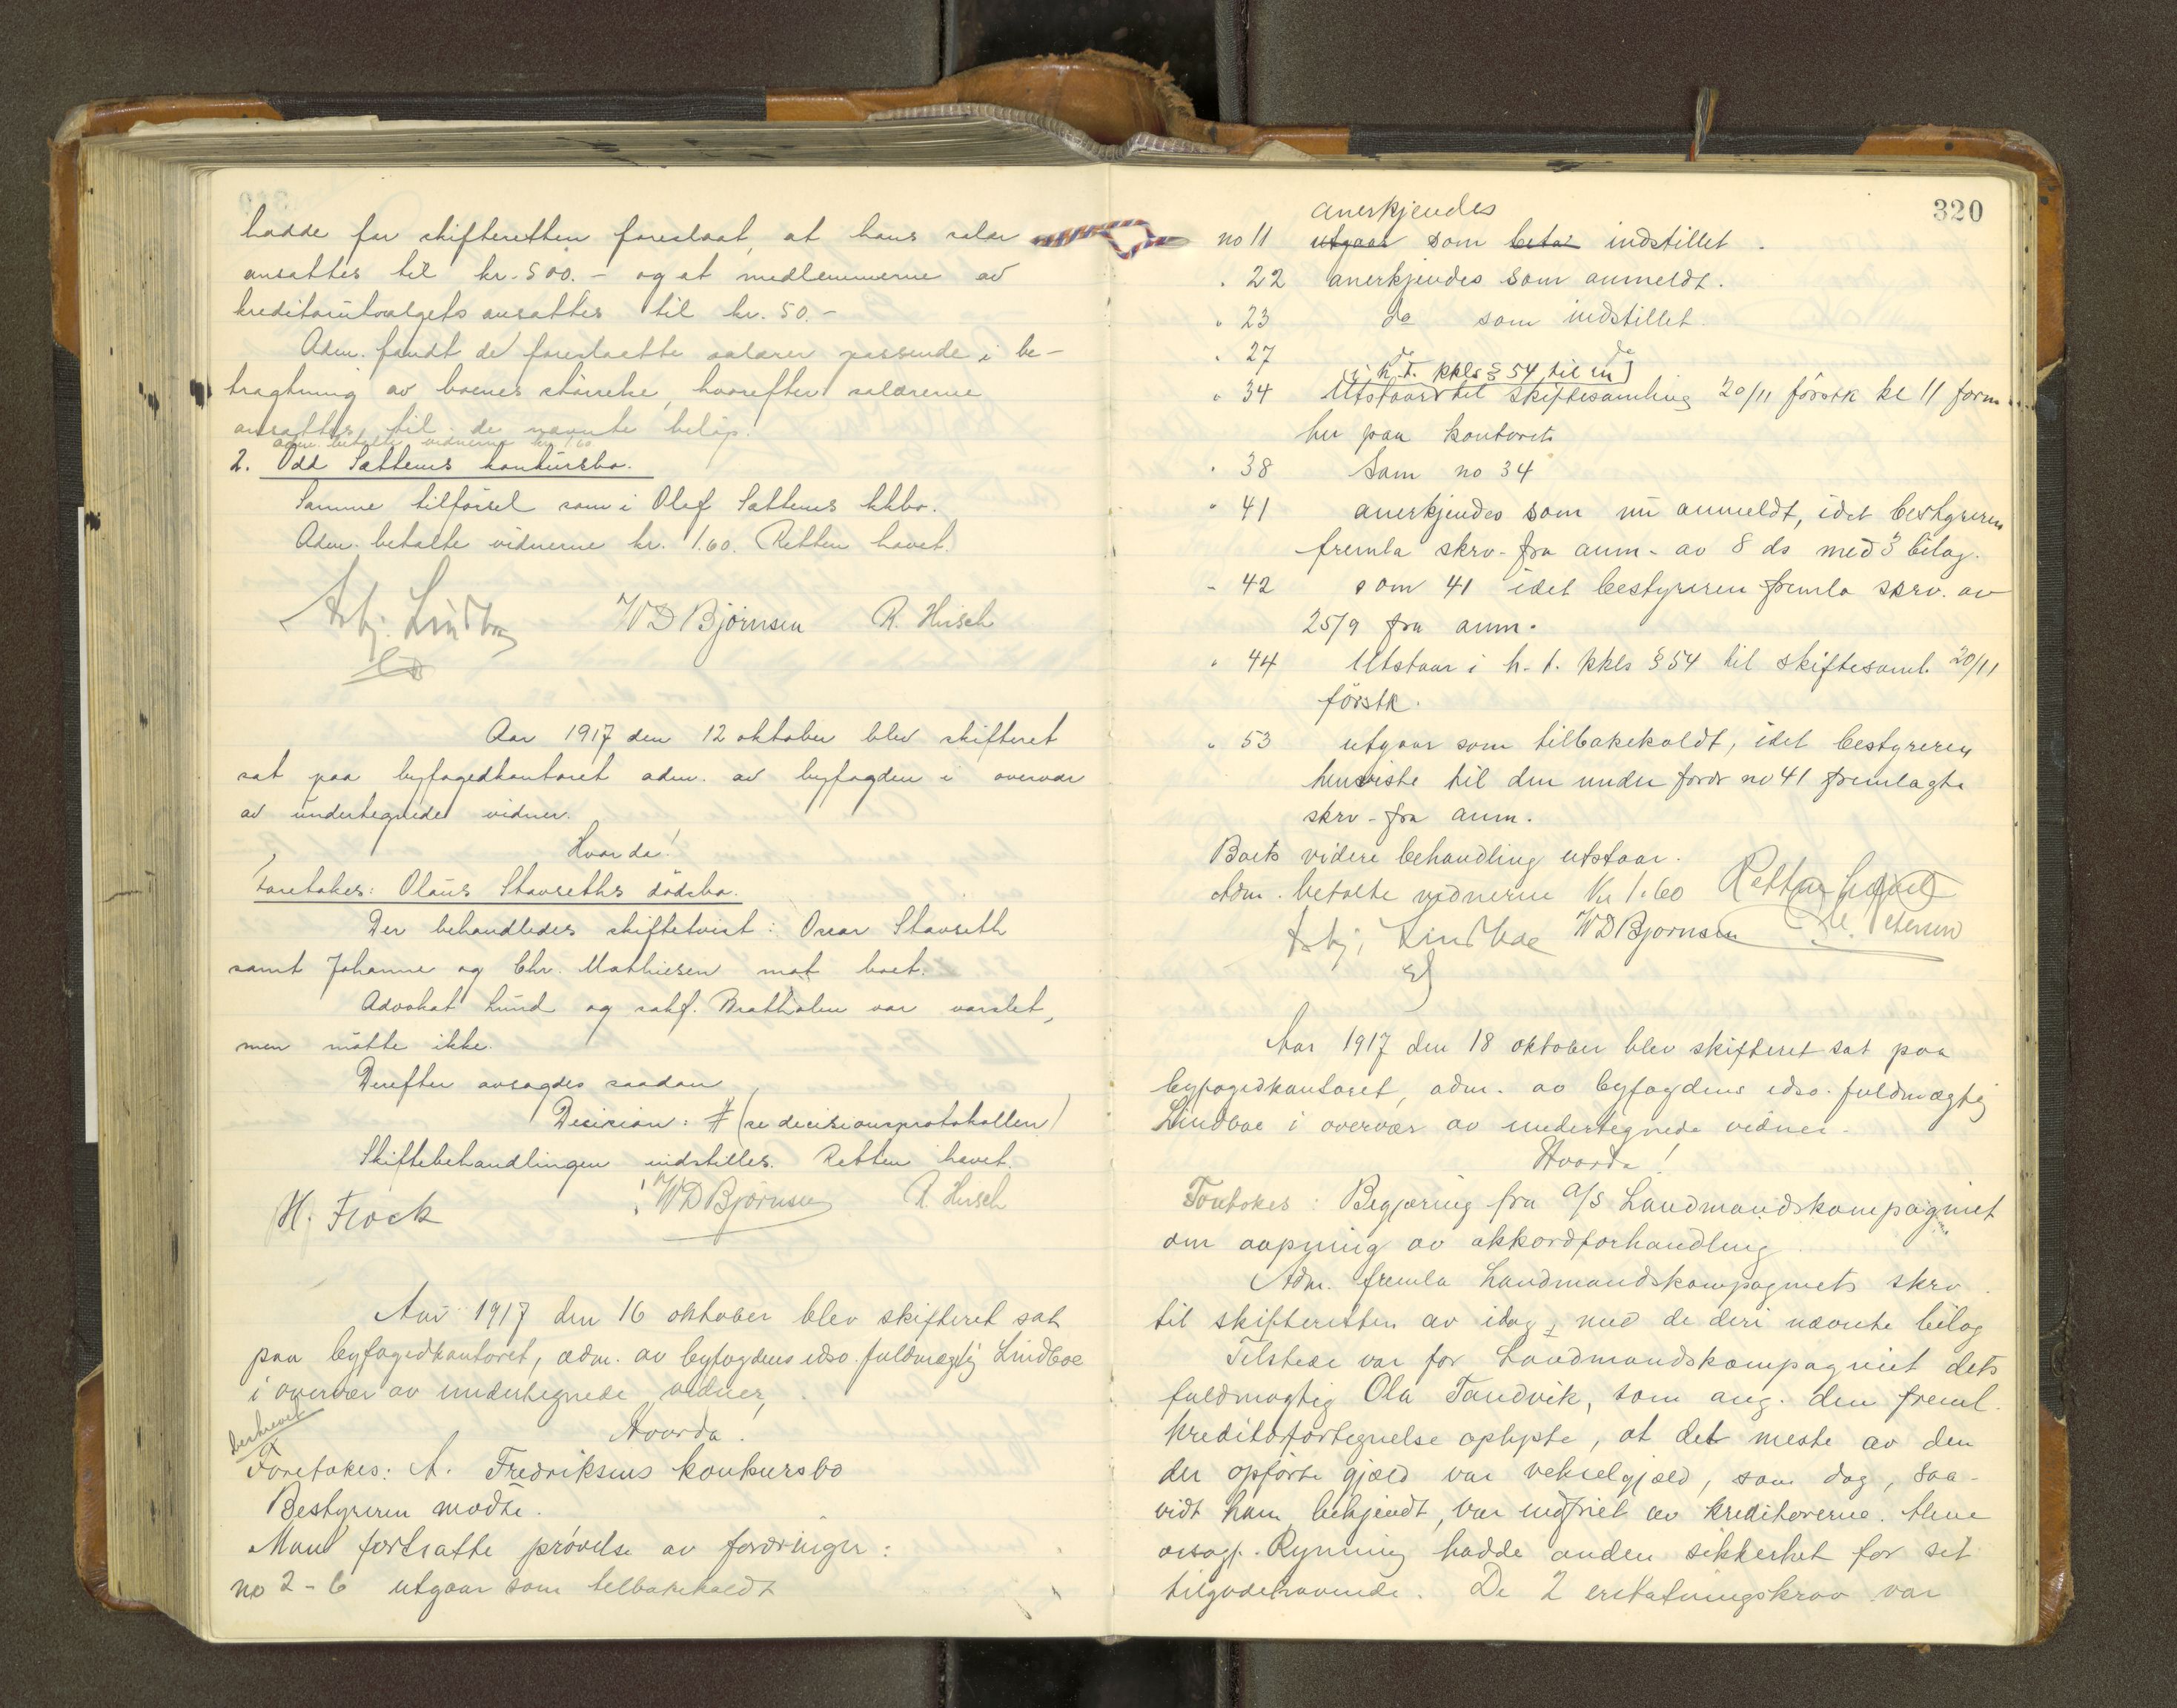 hadde for skifteretten foreslaat, at hans salær
ansattes til kr. 500.- og at medlemmerne av
kreditorutvalgets ansattes til kr. 50.-
Adm. fandt de foreslaatte salærer passende i be-
tragtning av boenes størrelse, hvorefter salærerne
ansattes til de nævnte beløp.
adm. betalte vidnerne kr. 1.60
2. Odd Sættems konkursbo.
Samme tilførsel som i Olaf Sættems kkbo.
Adm. betalte vidnerne kr. 1.60. Retten hævet.
Asbj. Lindboe
W D Bjørnsen R. Hirsch
Aar 1917 den 12 oktober blev skifteret
sat paa byfogedkontoret adm. av byfogden i overvær
av undertegnede vidner.
Hvorda!
Foretokes: Olaus Stavseths dødsbo.
Der behandledes skiftetvist: Oscar Stavseth
samt Johanne og Chr. Mathiesen mot boet.
Advokat Lund og sakf. Bratholm var varslet,
men møtte ikke.
Derefter avsagdes saadan
Decision: # (se decisionsprotokollen)
Skiftebehandlingen indstilles. Retten hævet.
H. Flock W D Bjørnsen R. Hirsch
Aar 1917 den 16 oktober blev skifteret sat
paa byfogedkontoret, adm. av byfogdens edsv. fuldmægtig Lindboe
i overvær av undertegnede vidner,
Hvorda!
beskrevet
Foretokes: A. Fredriksens konkursbo
Bestyreren mødte.
Man fortsatte prøvelse av fordringer:
no 2-6 utgaar som tilbakekaldt
320
anerkjendes
no 11 utgaar som betal indstillet.
" 22 anerkjendes som anmeldt.
" 23 do som indstillet
" 27 do do
(i h. t. kkls § 54 til en)
" 34 Utstaar til skiftesamling 20/11 førstk kl 11 form
her paa kontoret
" 38 Som no 34
" 41 anerkjendes som nu anmeldt, idet bestyreren
fremla skrv. fra anm. av 8 ds med 3 bilag.
" 42 som 41 idet bestyreren fremla skrv. av
25/9 fra anm.
" 44 Utstaar i h. t. kkls § 54 til skiftesaml. 20/11
førstk.
" 53 utgaar som tilbakekaldt, idet bestyreren
henviste til den under fordr no 41 fremlagte
skrv. fra anm.
Boets videre behandling utstaar.
Adm. betalte vidnerne Kr 1.60 Retten hævet
Asbj. Lindboe W D Bjørnsen Petersen
Aar 1917 den 18 oktober blev skifteret sat paa
byfogedkontoret, adm. av byfogdens edsv. fuldmægtig
Lindboe i overvær av undertegnede vidner.
Hvorda!
Foretokes: Begjæring fra A/S Landmandskompagniet
om aapning av akkordforhandling
Adm. fremla Landmandskompagniets skrv.
til skifteretten av idag med de deri nævnte bilag
Tilstede var for Landmandskompagniet dets
fuldmægtig Ola Tandvik, som ang. den freml.
kreditorfortegnelse oplyste, at det meste av den
der opførte gjæld var vekselgjæld, som dog, saa-
vidt ham bekjendt, var indfriet av kreditorerne. Alene
oversagf. Rynning hadde anden sikkerhet for sit
tilgodehavende. De 2 erstatningskrav var